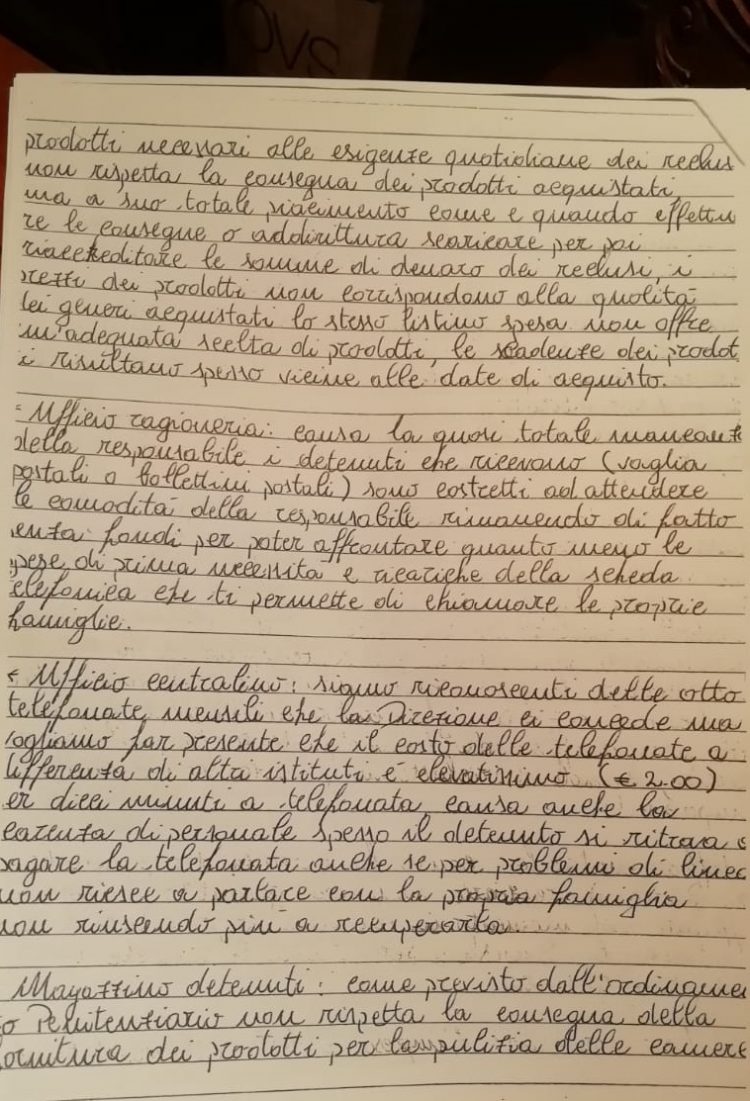 OVS
prodotti necessari alle esigenze quotidiane dei reclus
non rispetta la consegna dei prodotti acquistati,
ma a suo totale piacimento come e quando effettu
re le consegne o addirittura scaricare per poi
riaccreditare le somme di denaro dei reclusi, i
rezzi dei prodotti non corrispondono alla qualità
dei generi acquistati lo stesso listino spesa non offre
un'adeguata scelta di prodotti, le scadenze dei prodot
i risultano spesso vicine alle date di acquisto.
- Ufficio ragioneria: causa la quasi totale mancante
della responsabile i detenuti che ricevono (vaglia
postali o bollettini postali) sono costretti ad attendere
le comodità della responsabile rimanendo di fatto
enza fondi per poter affrontare quanto meno le
spese di prima necessità e ricariche della scheda
elefonica che ti permette di chiamare le proprie
famiglie.
- Ufficio centralino: siamo riconoscenti delle otto
telefonate mensili che la Direzione ci concede ma
vogliamo far presente che il costo delle telefonate a
differenza di altri istituti è elevatissimo (€ 2.00)
er dieci minuti a telefonata, causa anche la
carenza di personale spesso il detenuto si ritrova a
pagare la telefonata anche se per problemi di linea
non riesce a parlare con la propria famiglia
non riuscendo più a recuperarla.
Magazzino detenuti: come previsto dall'ordinamen
to Penitenziario non rispetta la consegna della
fornitura dei prodotti per la pulizia delle camere